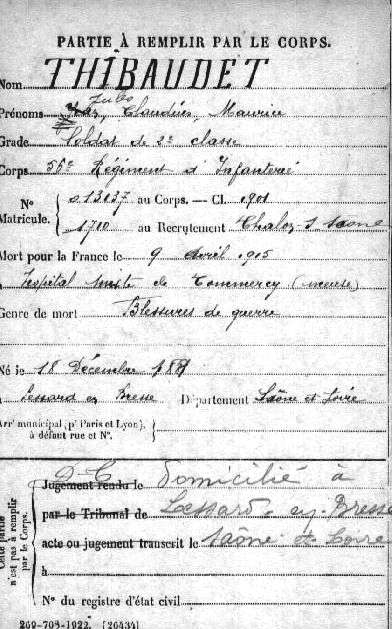 PARTIE À REMPLIR PAR LE CORPS.
Nom THIBAUDET
Prénoms Jules, Claudius, Maurice
Grade Soldat de 2e classe
Corps 56e Régiment d'Infanterie
N° Matricule. { 013037 au Corps. — Cl. 1901
1710 au Recrutement Chalon s Saone
Mort pour la France le 9 Avril 1915
à Hospital mixte de Commercy (meuse)
Genre de mort Blessures de guerre
Né le 18 Décembre 1881
à Lessard en Bresse Département Saône et Loire
Arrt municipal (pr Paris et Lyon), à défaut rue et N°. {
Cette partie n'est pas à remplir par le Corps.
Jugement rendu le Domicilié à
par le Tribunal de Lessard en Bresse
acte ou jugement transcrit le Saône et Loire
à
N° du registre d'état civil
269-708-1922. [26434]